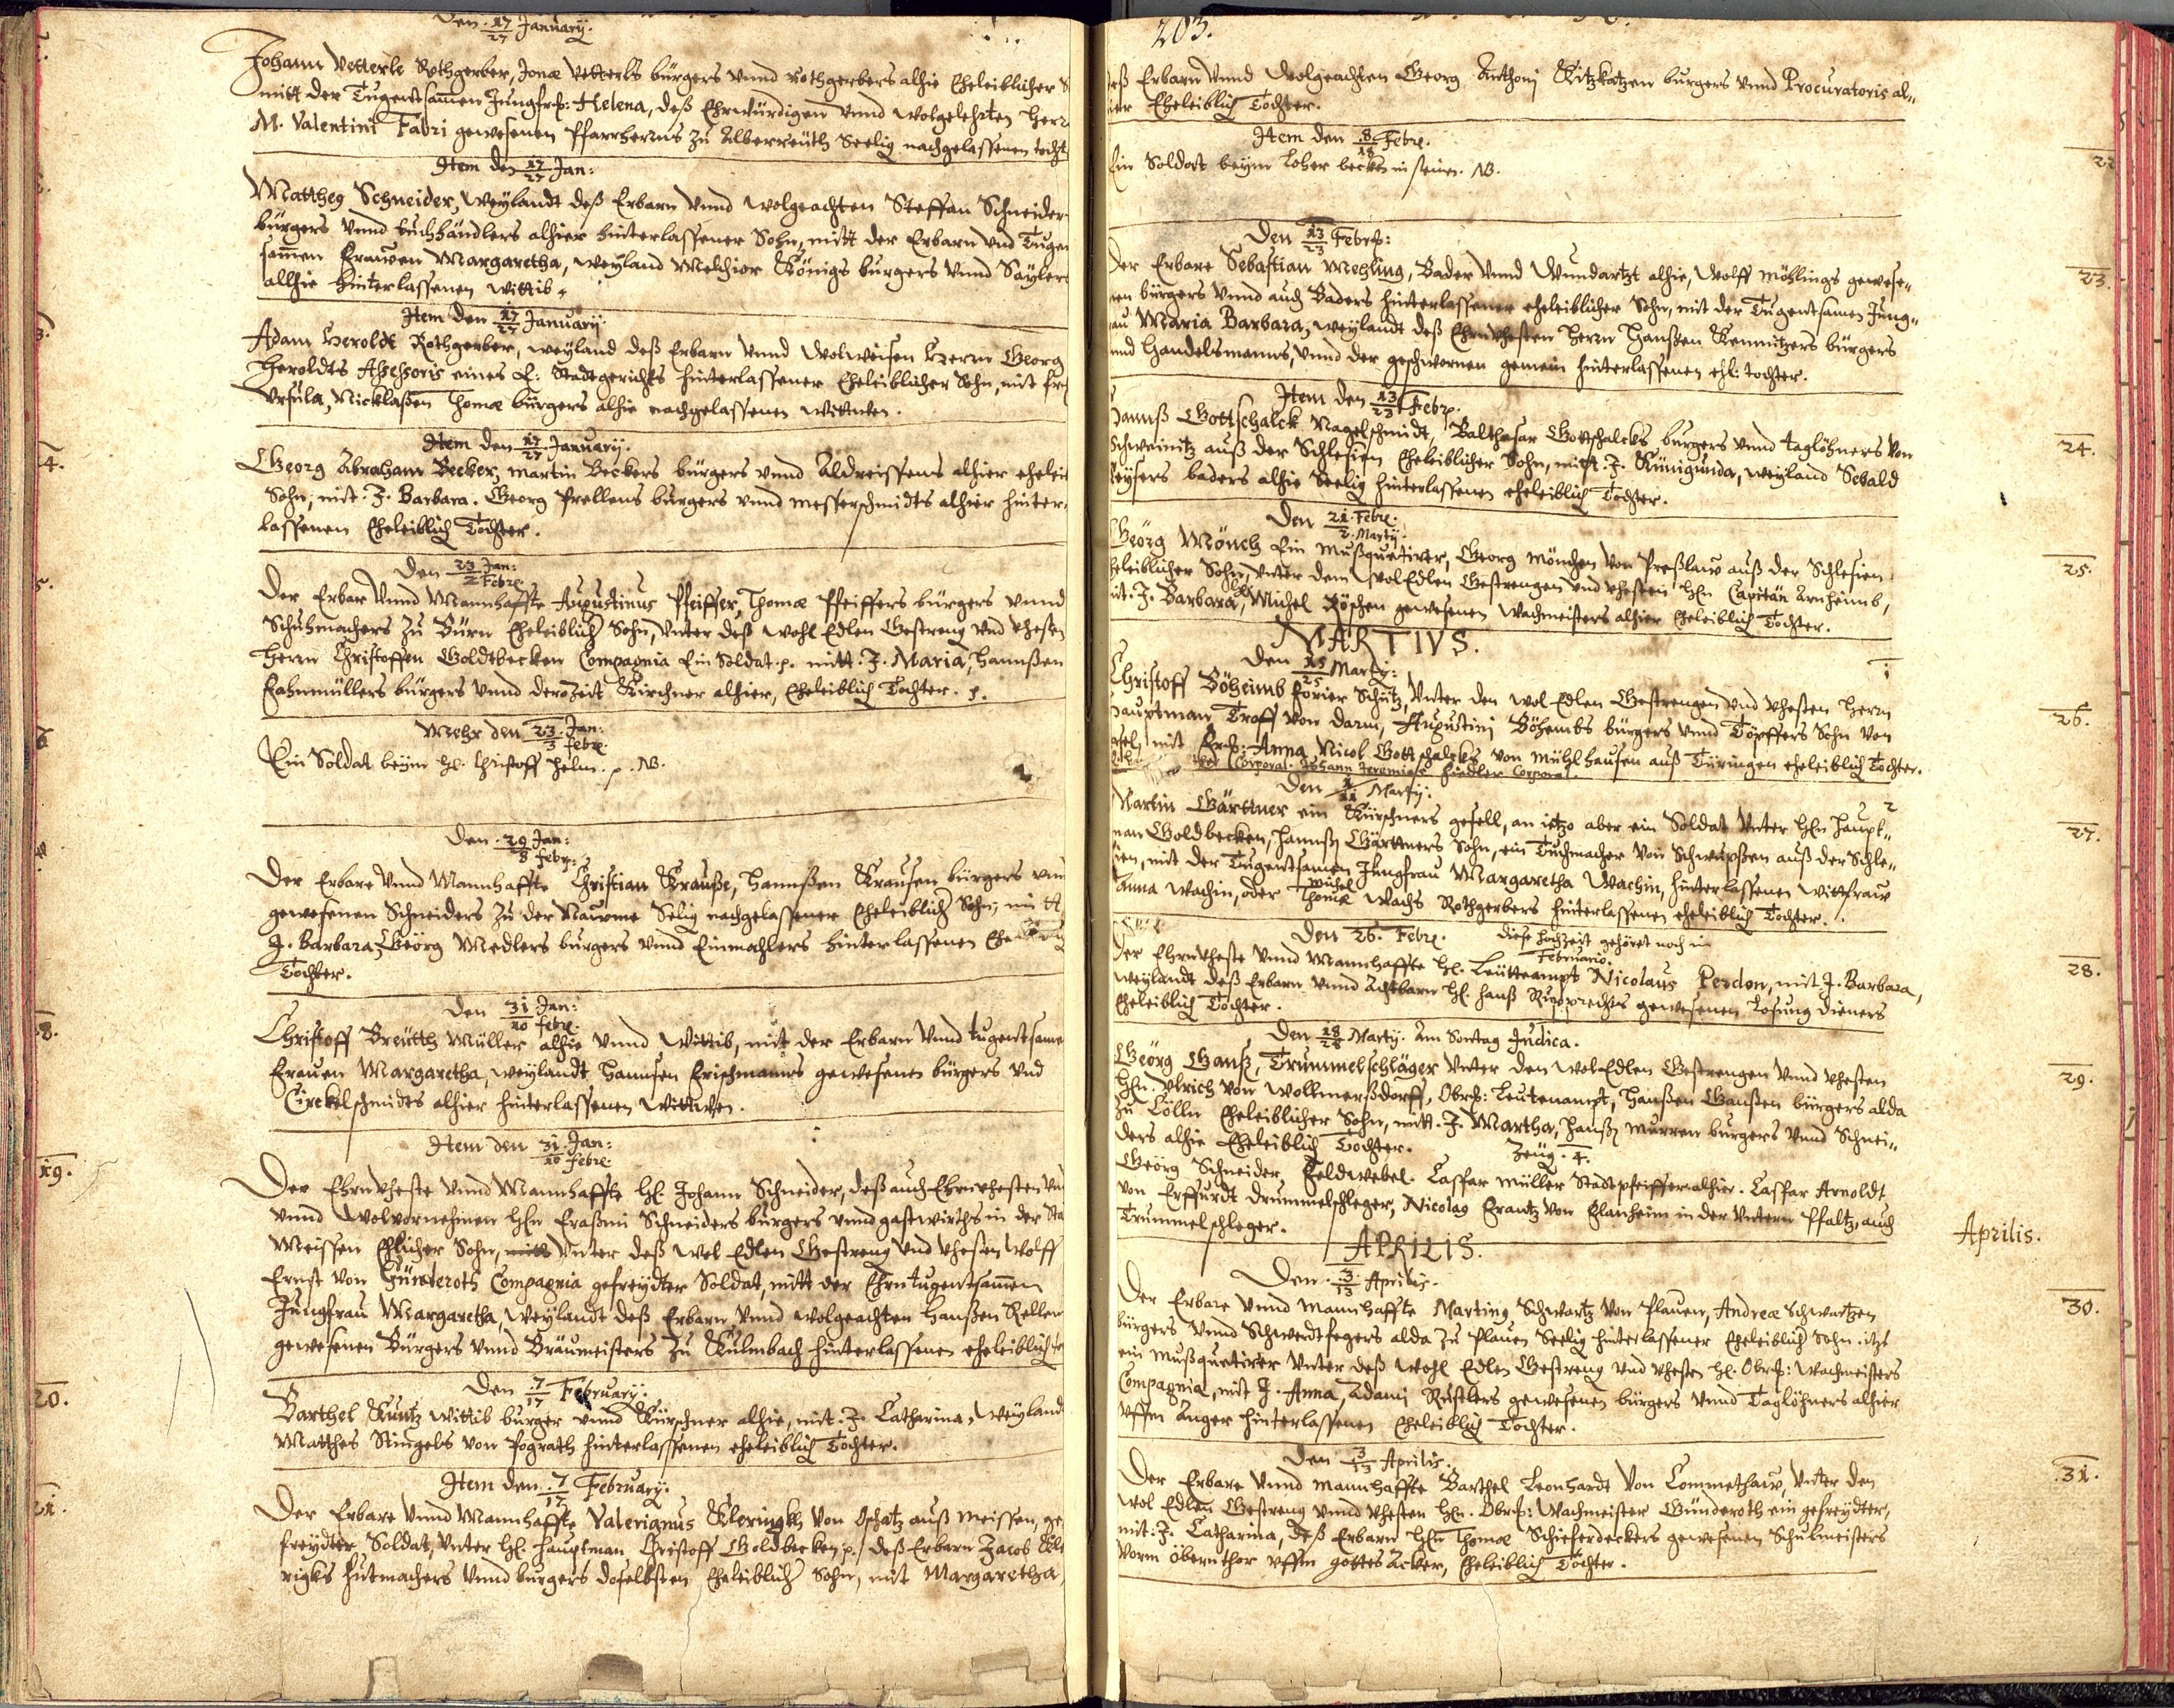 Den 17/27 January.
Johann Vetterle Rothgerber, Jonæ Vetterls bürgers vnnd Rothgerbers alhie Eheleiblicher S
mitt der Tugentsamen Jungfrſ: Helena, deß Ehrwürdigen vnnd wolgelehrten Herr
M. Valentini Fabri gewesenen Pfarrherrns zu Alberreuth Seelig nachgelassenen tocht
Item den 17/27 Jan:
Mattheg Schneider, Weylandt deß Erbarn vnnd wolgeachten Steffan Schneider
bürgers vnnd buchhändlers alhier hinterlassener Sohn, mitt der Erbarn vnd Tugen
samen Frauen Margaretha, weyland Melchior Königs bürgers vnnd Saylers
alhie hinterlassenen wittib.
Item den 17/27 January.
Adam Heroldt Rothgerber, weyland deß Erbarn vnnd Wolweisen Herrn Georg
Heroldts Assessoris eines E: Stadtgerichts hinterlassener Eheleiblicher Sohn, mit
Vrsula, Nicklaßen Thomæ bürgers alhie nachgelassenen Wittwen.
Item den 17/27 January.
14.
Georg Abraham Becker, Martin Beckers bürgers vnnd Aldreissens alhier ehelei
Sohn, mit J. Barbara. Georg Prellens bürgers vnnd messerschmidts alhier hinter
lassenen Eheleiblich Tochter.
Den 23 Jan: / 2 Febre.
Der Erbar vnnd Mannhaffte Augustinus Pfeiffer, Thomæ Pfeiffers bürgers vnnd
Schuhmachers zu Bürn Eheleiblich Sohn, vnter deß wohl Edlen Gestreng vnd vhesten
Herrn Christoffen Goldtbecken Compagnia Ein Soldat p. mitt J. Maria, Hannßen
Hahnmüllers bürgers vnnd derozeit Kirchner alhier, Eheleiblich Tochter.
Mehr den 23 Jan: / 3 febre.
Ein Soldat beym H. Christoff Helm. p. NB.
Den 29 Jan: / 8 febr:
Der Erbare vnnd Mannhaffte Christian Krauße, Hannßen Krausen bürgers vnn
gewesenen Schneiders zu der Selig nachgelassener Eheleiblich Sohn, mitt
J. Barbara, Geörg Medlers bürgers vnnd Einmahlers hinterlassenen
Tochter.
Den 31 Jan: / 10 febre.
18.
Christoff Breütth Müller alhie vnnd Wittib, mit der Erbarn vnnd tugentsame
Frauen Margaretha, weylandt Hannsen Erischmanns gewesenen bürgers vnd
Circkelschmidts alhier hinterlassenen Wittwen.
Item den 31 Jan: / 10 febre.
19.
Der Ehrnvheste vnnd Mannhaffte H. Johann Schneider, deß auch Ehrnvhesten
vnnd wolvornehmen Hn Erasmi Schneiders bürgers vnnd gastwirths in der Sta
Meissen Ehlicher Sohn, vnter deß wol Edlen Gestreng vnd vhesten Wolff
Ernst von Günteroth Compagnia gefreydter Soldat, mitt der Ehrntugentsamen
Jungfrau Margaretha, Weylandt deß Erbarn vnnd wolgeachten Hanßen Keller
gewesenen Bürgers vnnd Bräumeisters zu Kulmbach hinterlassenen eheleiblich
Den 7/17 February.
20.
Barthel Kuntz wittib burger vnnd Kürschner alhie, mit J. Catharina, weyland
Matthes Stingels von Pograth hinterlassenen eheleiblich Tochter.
Item den 7/17 February.
21.
Der Erbare vnnd Mannhaffte Valerianus Kleringkh von Oschatz auß Meissen, ge
freydter Soldat, vnter H. Hauptman Christoff Goldbecken p. deß Erbarn Jacob
rigks Hutmachers vnnd burgers daselbsten Eheleiblich Sohn, mit Margaretha,
203.
deß Erbarn vnnd Wolgeachten Georg Anthonj Kitzkatzen burgers vnnd Procuratoris al„
hier Eheleiblich Tochter.
Item den 8/18 Febre.
22
Ein Soldat beym Loher becken in seinen. NB.
Den 13/23 Febre:
23.
Der Erbare Sebastian Mehling, Bader vnnd Wundartzt alhie, Wolff Mählings gewese„
nen bürgers vnnd auch Baders hinterlassener eheleiblicher Sohn, mit der Tugentsamen Jung„
frau Maria Barbara, weylandt deß Ehrnvhesten Herrn Hanßen Kemnitzers bürgers
vnnd Handelsmanns, vnnd der geschwornen gemein hinterlassenen ehl: tochter.
Item den 13/23 Febre.
24.
Hannß Gottschalck Nagelschmidt, Balthasar Gottschalcks burgers vnnd taglöhners von
Schweinitz auß der Schlesien Eheleiblicher Sohn, mit J. Künigunda, weyland Sebald
Keysers baders alhie Seelig hinterlassenen eheleiblich Tochter.
Den 21 Febre. / 3 Marty.
25.
Georg Mönch Ein Mußquetirer, Georg Mönchen von Preßlaw auß der Schlesien
Eheleiblicher Sohn, vnter dem Wol Edlen Gestrengen vnd vhesten Hn Capitan Arnheimb,
mit J. Barbara, Michel Köschen gewesenen Wachmeisters alhier Eheleiblich Tochter.
MARTIVS.
Den 15/25 Marty:
26.
Christoff Böheimb forier Schütz, vnter den wol Edlen Gestrengen vnd vhesten Herrn
Hauptman Troff von Darm, Augustinj Böhembs bürgers vnnd Töpffers Sohn von
mit Anna, Nicol Gottschalcks von Mühlhausen auß Türingen eheleiblich Tochter.
Corporal. Johann Jeremias Fiedler Corporal.
Den 1/11 Marty.
27.
Martin Gärttner ein Kürschners gesell, an ietzo aber ein Soldat vnter Hn Haupt„
man Goldbecken, Hannß Gärttners Sohn, ein Tuchmacher von Schwupßen auß der Schle„
sien, mit der Tugentsamen Jungfrau Margaretha Wachin, hinterlassenen Wittfraw
Anna Wachin, oder Thomæ Wachs Rothgerbers hinterlassenen eheleiblich Tochter.
Michel
Den 26. Febre. Diese Hochzeit gehöret noch in
Februario.
28.
Der Ehrnvheste vnnd Mannhaffte H. Leütteampt Nicolaus Perdon, mit J. Barbara,
weylandt deß Erbarn vnnd Achtbarn H. Hanß Rupprechts gewesenen Losung dieners
Eheleiblich Tochter.
Den 18/28 Marty. Am Sontag Judica.
29.
Geörg Ganß, Trummelschläger vnter den wol Edlen Gestrengen vnnd vhesten
Hn Vlrich von Wollmerßdorff, Obrs: Leutenampt, Hanßen Ganßen bürgers alda
zu Cölln Eheleiblicher Sohn, mitt J. Martha, Hanß Murren burgers vnnd Schnei„
ders alhie Eheleiblich Tochter. Zeug. 4.
Geörg Schneider Feldwebel. Casfar Müller Stadtpfeiffer alhier. Casfar Arnoldt
von Erffurdt drummelschleger, Nicolag Frantz von Glanheim in der vntern Pfaltz, auch
Trummelschleger.
APRILIS.
Aprilis.
Den 3/13 Aprilis.
30.
Der Erbare vnnd Mannhaffte Marting Schwartz von Plauen, Andreæ Schwartzen
bürgers vnnd Schwerdtfegers alda zu Plauen Seelig hinterlassener Eheleiblich Sohn. itzt
ein Mußquetirer vnter deß wohl Edlen Gestreng vnd vhesten H. Obrs: Wachmeisters
Compagnia, mit J. Anna, Adami Rustlers gewesenen bürgers vnnd Taglöhners alhier
vffm Anger hinterlassenen Eheleiblich Tochter.
Den 3/13 Aprilis.
31.
Der Erbare vnnd Mannhaffte Barthel Leonhardt von Commethaw, vnter den
wol Edlen Gestreng vnnd vhesten Hn. Obrs: Wachmeister Günderoth ein gefreydter,
mit: J. Catharina, deß Erbarn Hn Thomæ Schieferdeckers gewesenen Schulmeisters
vorm Obernthor vffm gottes Acker, Eheleiblich Tochter.